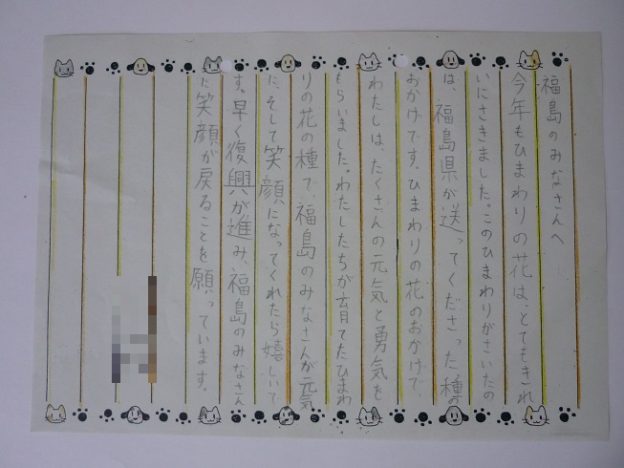 福島のみなさんへ
今年もひまわりの花は、とてもきれ
いにさきました。このひまわりがさいたの
は、福島県が送ってくださった種の
おかげです。ひまわりの花のおかげで、
わたしは、たくさんの元気と勇気を
もらいました。わたしたちが育てたひまわ
りの花の種で、福島のみなさんが元気
に、そして笑顔になってくれたら嬉しいで
す。早く復興が進み、福島のみなさん
に笑顔が戻ることを願っています。